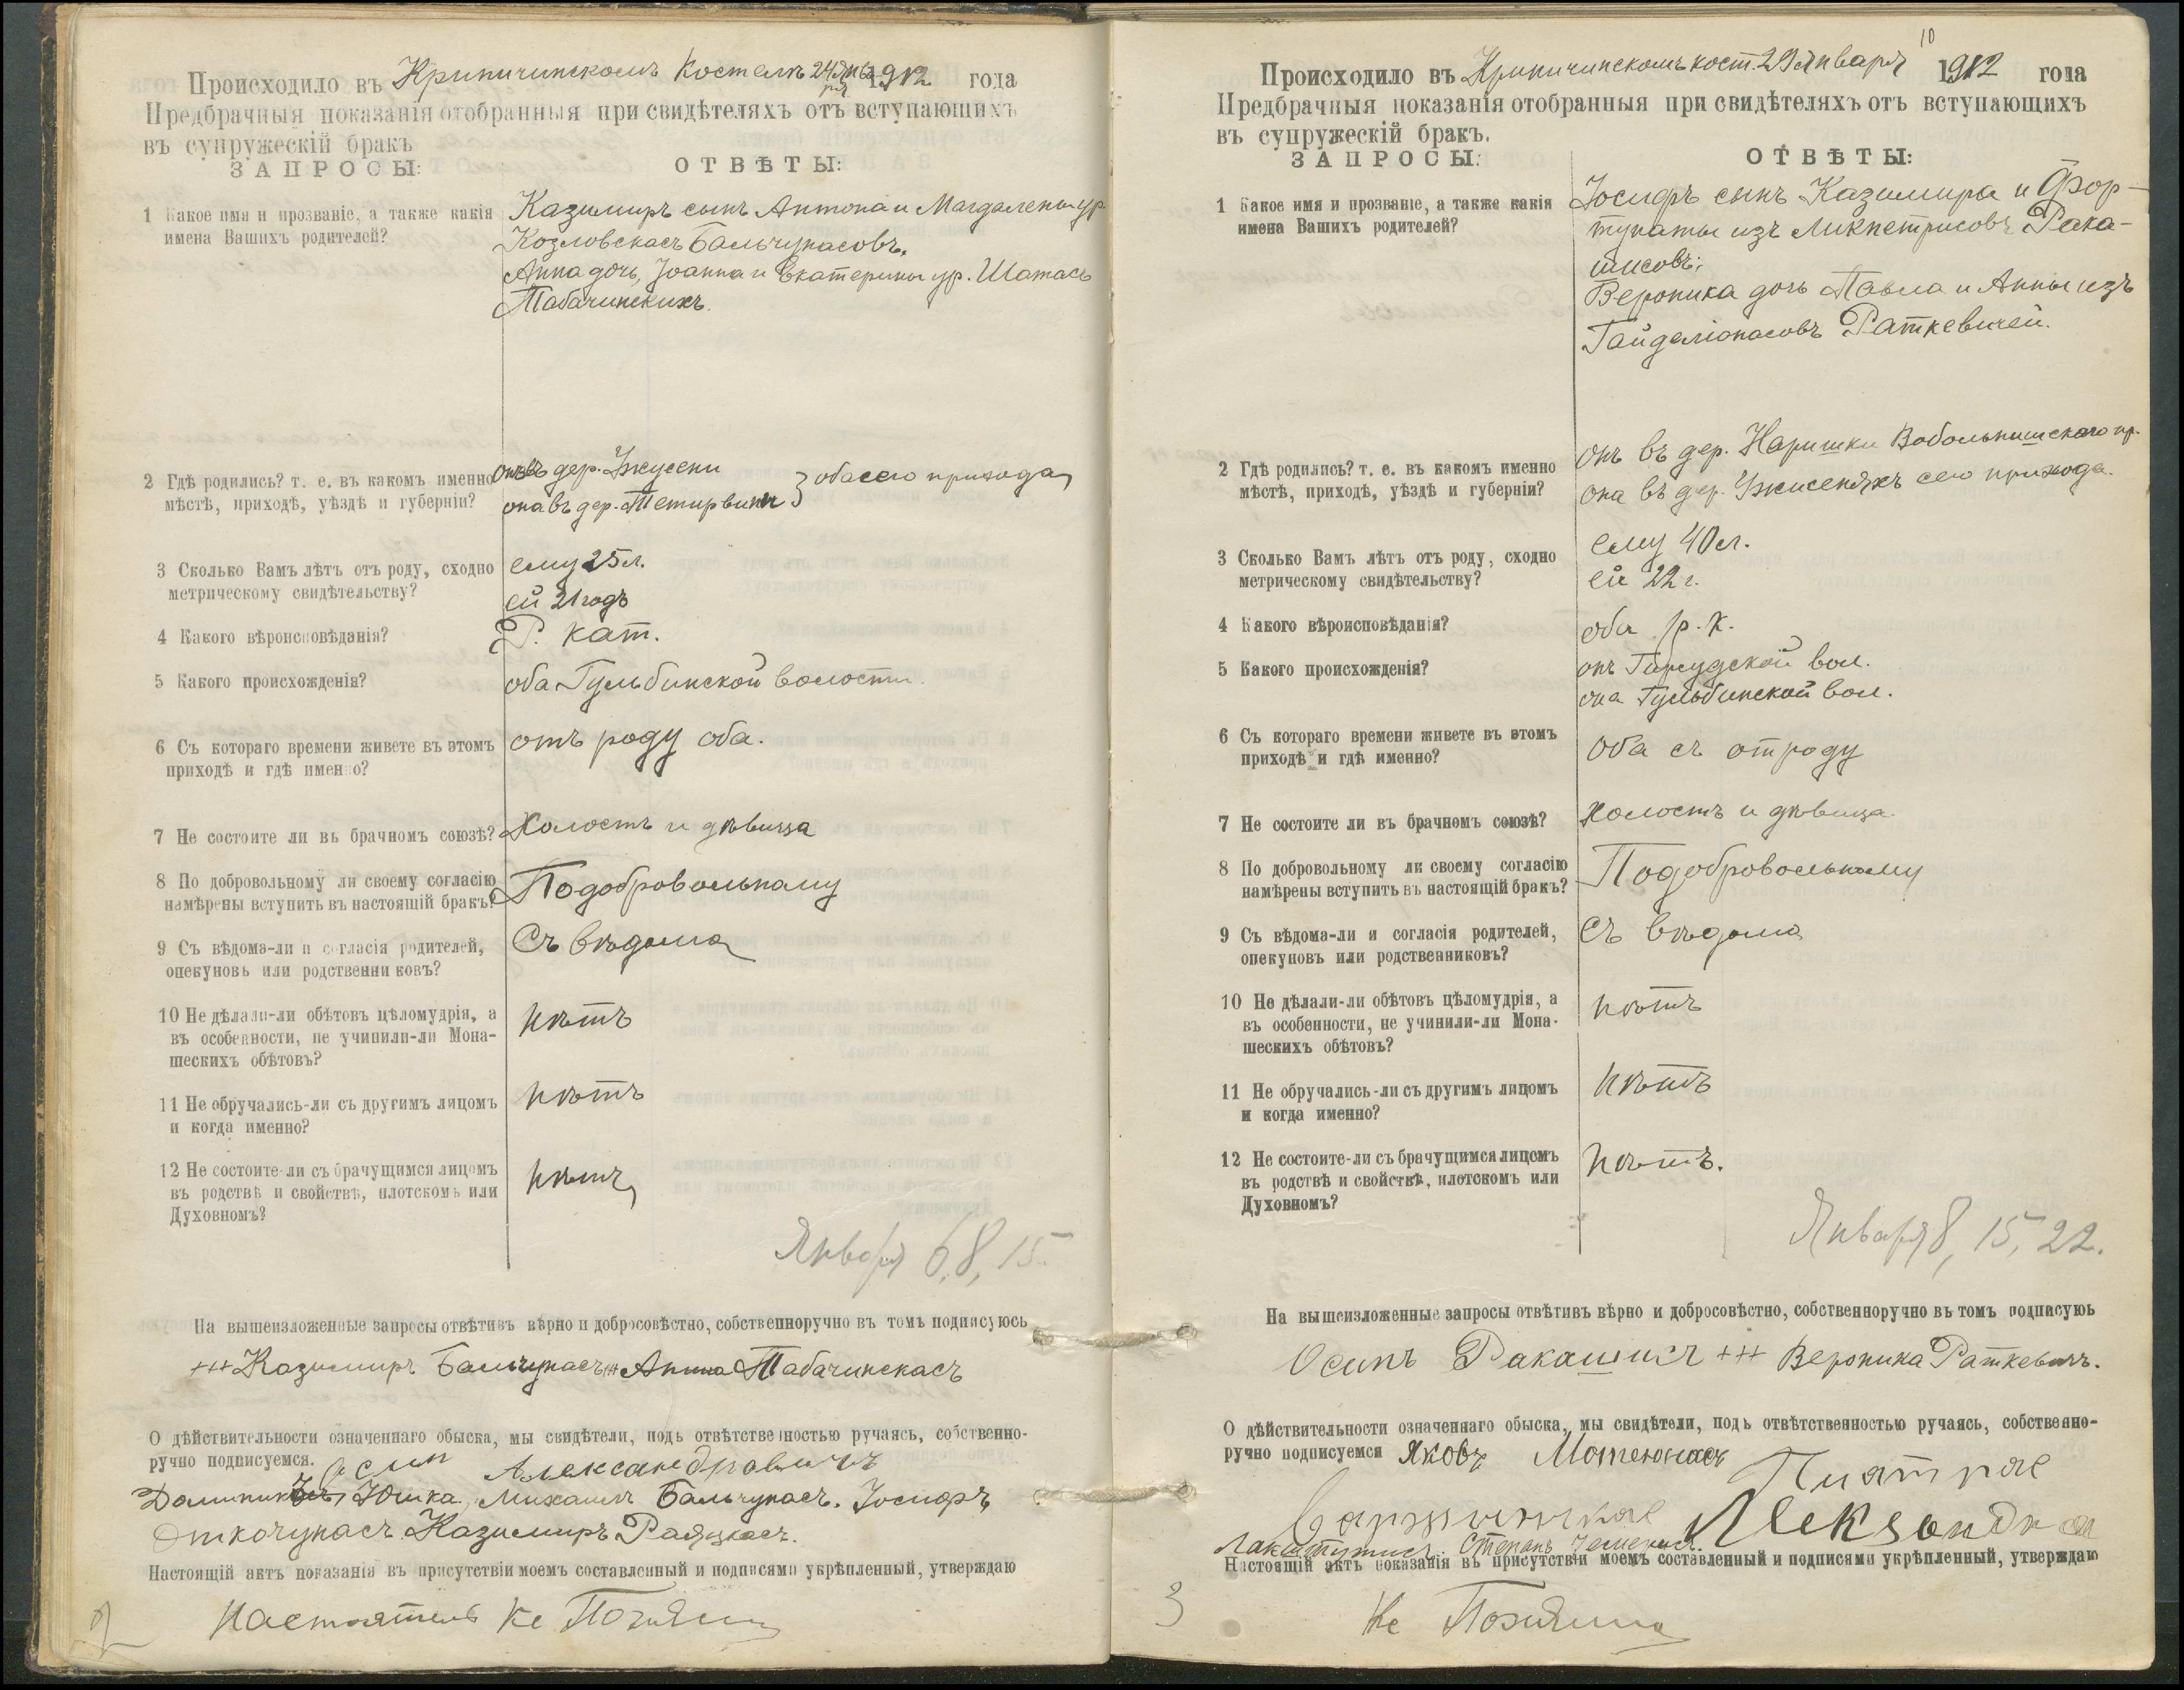 Происходило въ Криничинскомъ Костелѣ 24 Января 1912 года
Предбрачныя показанія отобранныя при свидѣтеляхъ отъ вступающихъ
въ супружескій бракъ
ЗАПРОСЫ: ОТВѢТЫ:
1 Какое имя и прозваніе, а также какія
имена Вашихъ родителей?
Казимиръ сынъ Антона и Магдалены ур.
Козловскасъ Бальчунасовъ,
Анна дочь Іоанна и Екатерины ур. Шатасъ
Табачинскихъ.
2 Гдѣ родились? т. е. въ какомъ именно
мѣстѣ, приходѣ, уѣздѣ и губерніи?
онъ въ дер. Ужусени
она въ дер. Тетирвины } оба сего прихода
3 Сколько Вамъ лѣтъ отъ роду, сходно
метрическому свидѣтельству?
ему 25 л.
ей 21 годъ
4 Какого вѣроисповѣданія?
Р. кат.
5 Какого происхожденія?
оба Гульбинской волости.
6 Съ котораго времени живете въ этомъ
приходѣ и гдѣ именно?
отъ роду оба.
7 Не состоите ли въ брачномъ союзѣ?
Холостъ и дѣвица
8 По добровольному ли своему согласію
намѣрены вступить въ настоящій бракъ?
По добровольному
9 Съ вѣдома-ли и согласія родителей,
опекуновъ или родственни ковъ?
Съ вѣдома
10 Не дѣлали-ли обѣтовъ цѣломудрія, а
въ особенности, не учинили-ли Мона-
шескихъ обѣтовъ?
нѣтъ
11 Не обручались-ли съ другимъ лицомъ
и когда именно?
нѣтъ
12 Не состоите-ли съ брачущимся лицомъ
въ родствѣ и свойствѣ, плотскомъ или
Духовномъ?
нѣтъ
Января 6, 8, 15.
На вышеизложенные запросы отвѣтивъ вѣрно и добросовѣстно, собственноручно въ томъ подписуюсь
+++ Казимиръ Бальчунасъ +++ Анна Табачинскасъ
О дѣйствительности означеннаго обыска, мы свидѣтели, подъ отвѣтственностью ручаясь, собственно-
ручно подписуемся.
Осип Александравичъ
Юшка, Михаилъ Бальчунасъ. Іосифъ
Казимиръ
Настоящій актъ показанія въ присутствіи моемъ составленный и подписями укрѣпленный, утверждаю
Настоятель Кс
2
10
Происходило въ Криничинскомъ кост. 29 Января 1912 года
Предбрачныя показанія отобранныя при свидѣтеляхъ отъ вступающихъ
въ супружескій бракъ.
ЗАПРОСЫ: ОТВѢТЫ:
1 Какое имя и прозваніе, а также какія
имена Вашихъ родителей?
Іосифъ сынъ Казимира и Фор-
тунаты изъ Микпетрисовъ Рака-
шисовъ;
Вероника дочь Павла и Анны изъ
Гайделіонасовъ Раткевичей.
2 Гдѣ родились? т. е. въ какомъ именно
мѣстѣ, приходѣ, уѣздѣ и губерніи?
онъ въ дер. Наришки Вобольникскаго пр.
она въ дер. Ужусеняхъ сего прихода.
3 Сколько Вамъ лѣтъ отъ роду, сходно
метрическому свидѣтельству?
ему 40 л.
ей 22 г.
4 Какого вѣроисповѣданія?
оба р.к.
5 Какого происхожденія?
онъ вол.
она Гульбинской вол.
6 Съ котораго времени живете въ этомъ
приходѣ и гдѣ именно?
Оба съ отроду
7 Не состоите ли въ брачномъ союзѣ?
холостъ и дѣвица.
8 По добровольному ли своему согласію
намѣрены вступить въ настоящій бракъ?
По добровольному
9 Съ вѣдома-ли и согласія родителей,
опекуновъ или родственниковъ?
Съ вѣдома
10 Не дѣлали-ли обѣтовъ цѣломудрія, а
въ особенности, не учинили-ли Мона-
шескихъ обѣтовъ?
нѣтъ
11 Не обручались-ли съ другимъ лицомъ
и когда именно?
нѣтъ
12 Не состоите-ли съ брачущимся лицомъ
въ родствѣ и свойствѣ, плотскомъ или
Духовномъ?
нѣтъ.
Января 8, 15, 22.
На вышеизложенные запросы отвѣтивъ вѣрно и добросовѣстно, собственноручно въ томъ подписуюь
Осипъ Ракашисъ +++ Вероника Раткевичъ.
О дѣйствительности означеннаго обыска, мы свидѣтели, подъ отвѣтственностью ручаясь, собственно-
ручно подписуемся Яковъ Мотеюнасъ
Пиятрас
Степанъ
Настоящій актъ показанія въ присутствіи моемъ составленный и подписями укрѣпленный, утверждаю
Кс
3